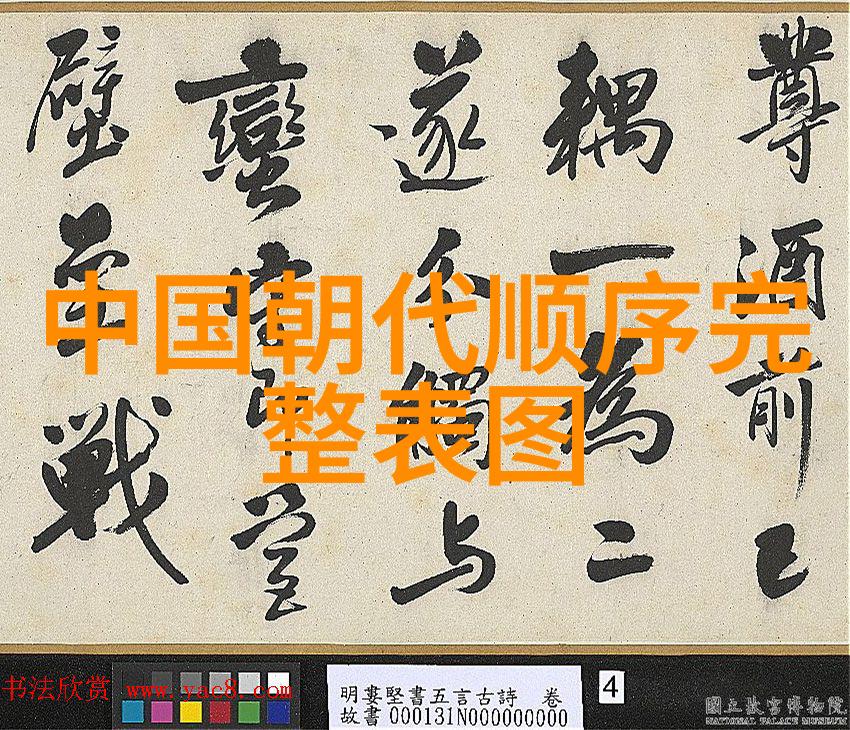 尊酒前已
耦一為二
遂觸与
蠻營
壁戰
中国朝代顺序完
整表图
书法欣赏 www.yac8.com
明婁堅書五言古詩 卷
故書000131N000000000
4
國立故宮博物院
NATIONAL PALACE MUSEUM